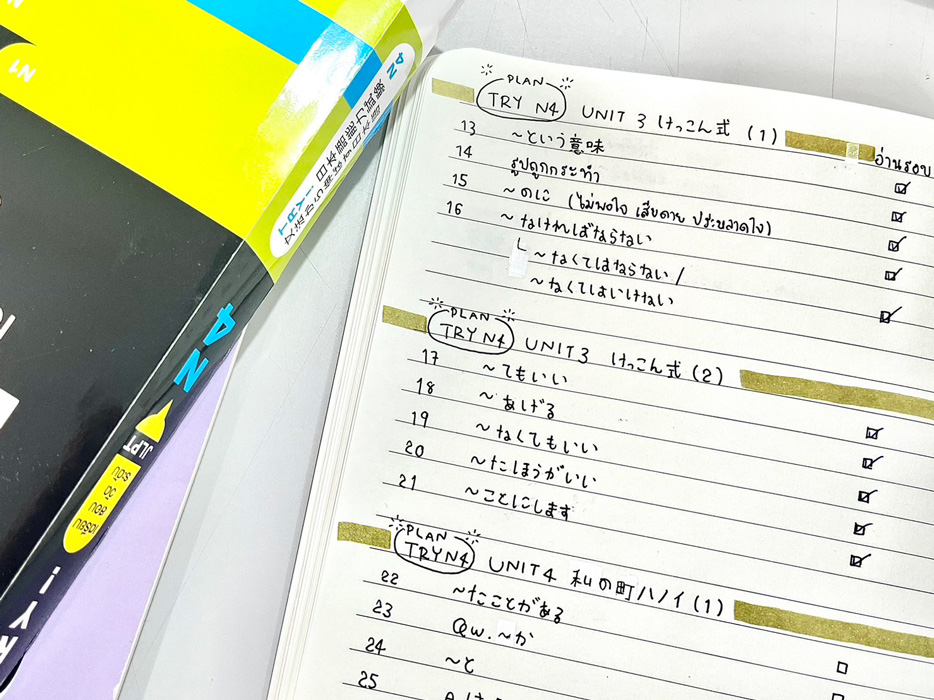 N1
N4
TRY!
日本語能力試験
文法から伸ばす日本語
N4
JLPT
เตรียม
สอบ
วัด
ระดับ
TRY!
PLAN
TRY N4 UNIT 3 けっこん式 (1)
อ่านรอบ
13 ~という意味
14 รูปถูกกระทำ
15 ~のに (ไม่พอใจ เสียดาย ประหลาดใจ)
16 ~なければならない
~なくてはならない /
~なくてはいけない
PLAN
TRY N4 UNIT3 けっこん式 (2)
17 ~てもいい
18 ~あげる
19 ~なくてもいい
20 ~たほうがいい
21 ~ことにします
PLAN
TRY N4 UNIT4 私の町ハノイ (1)
22 ~たことがある
23 Qw. ~か
24 ~と
25